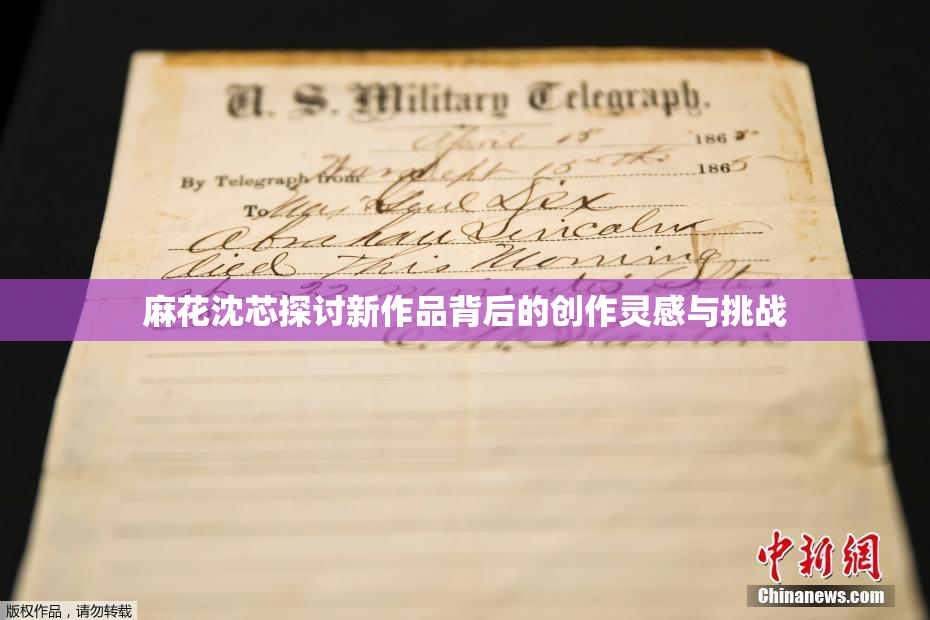 U. S. Military Telegraph.
April 15 1865
By Telegraph from War Dept 15th 1865
To Maj Genl Dix
Abraham Lincoln
died This Morning
at 22 minutes after
麻花沈芯探讨新作品背后的创作灵感与挑战
E. M. Stanton
中新网
Chinanews.com
版权作品，请勿转载